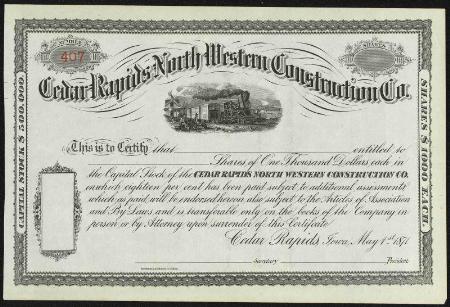 NUMBER
407
SHARES
Cedar Rapids North Western Construction Co.
CAPITAL STOCK $500,000.
SHARES $1000 EACH.
This is to Certify that entitled to
Shares of One Thousand Dollars each in
the Capital Stock of the CEDAR RAPIDS NORTH WESTERN CONSTRUCTION CO.
on which eighteen per cent has been paid subject to additional assessments
which as paid will be endorsed hereon also subject to the Articles of Association
and By Laws and is transferable only on the books of the Company in
person or by Attorney upon surrender of this Certificate
Cedar Rapids, Iowa, May 1st 1871
Secretary President